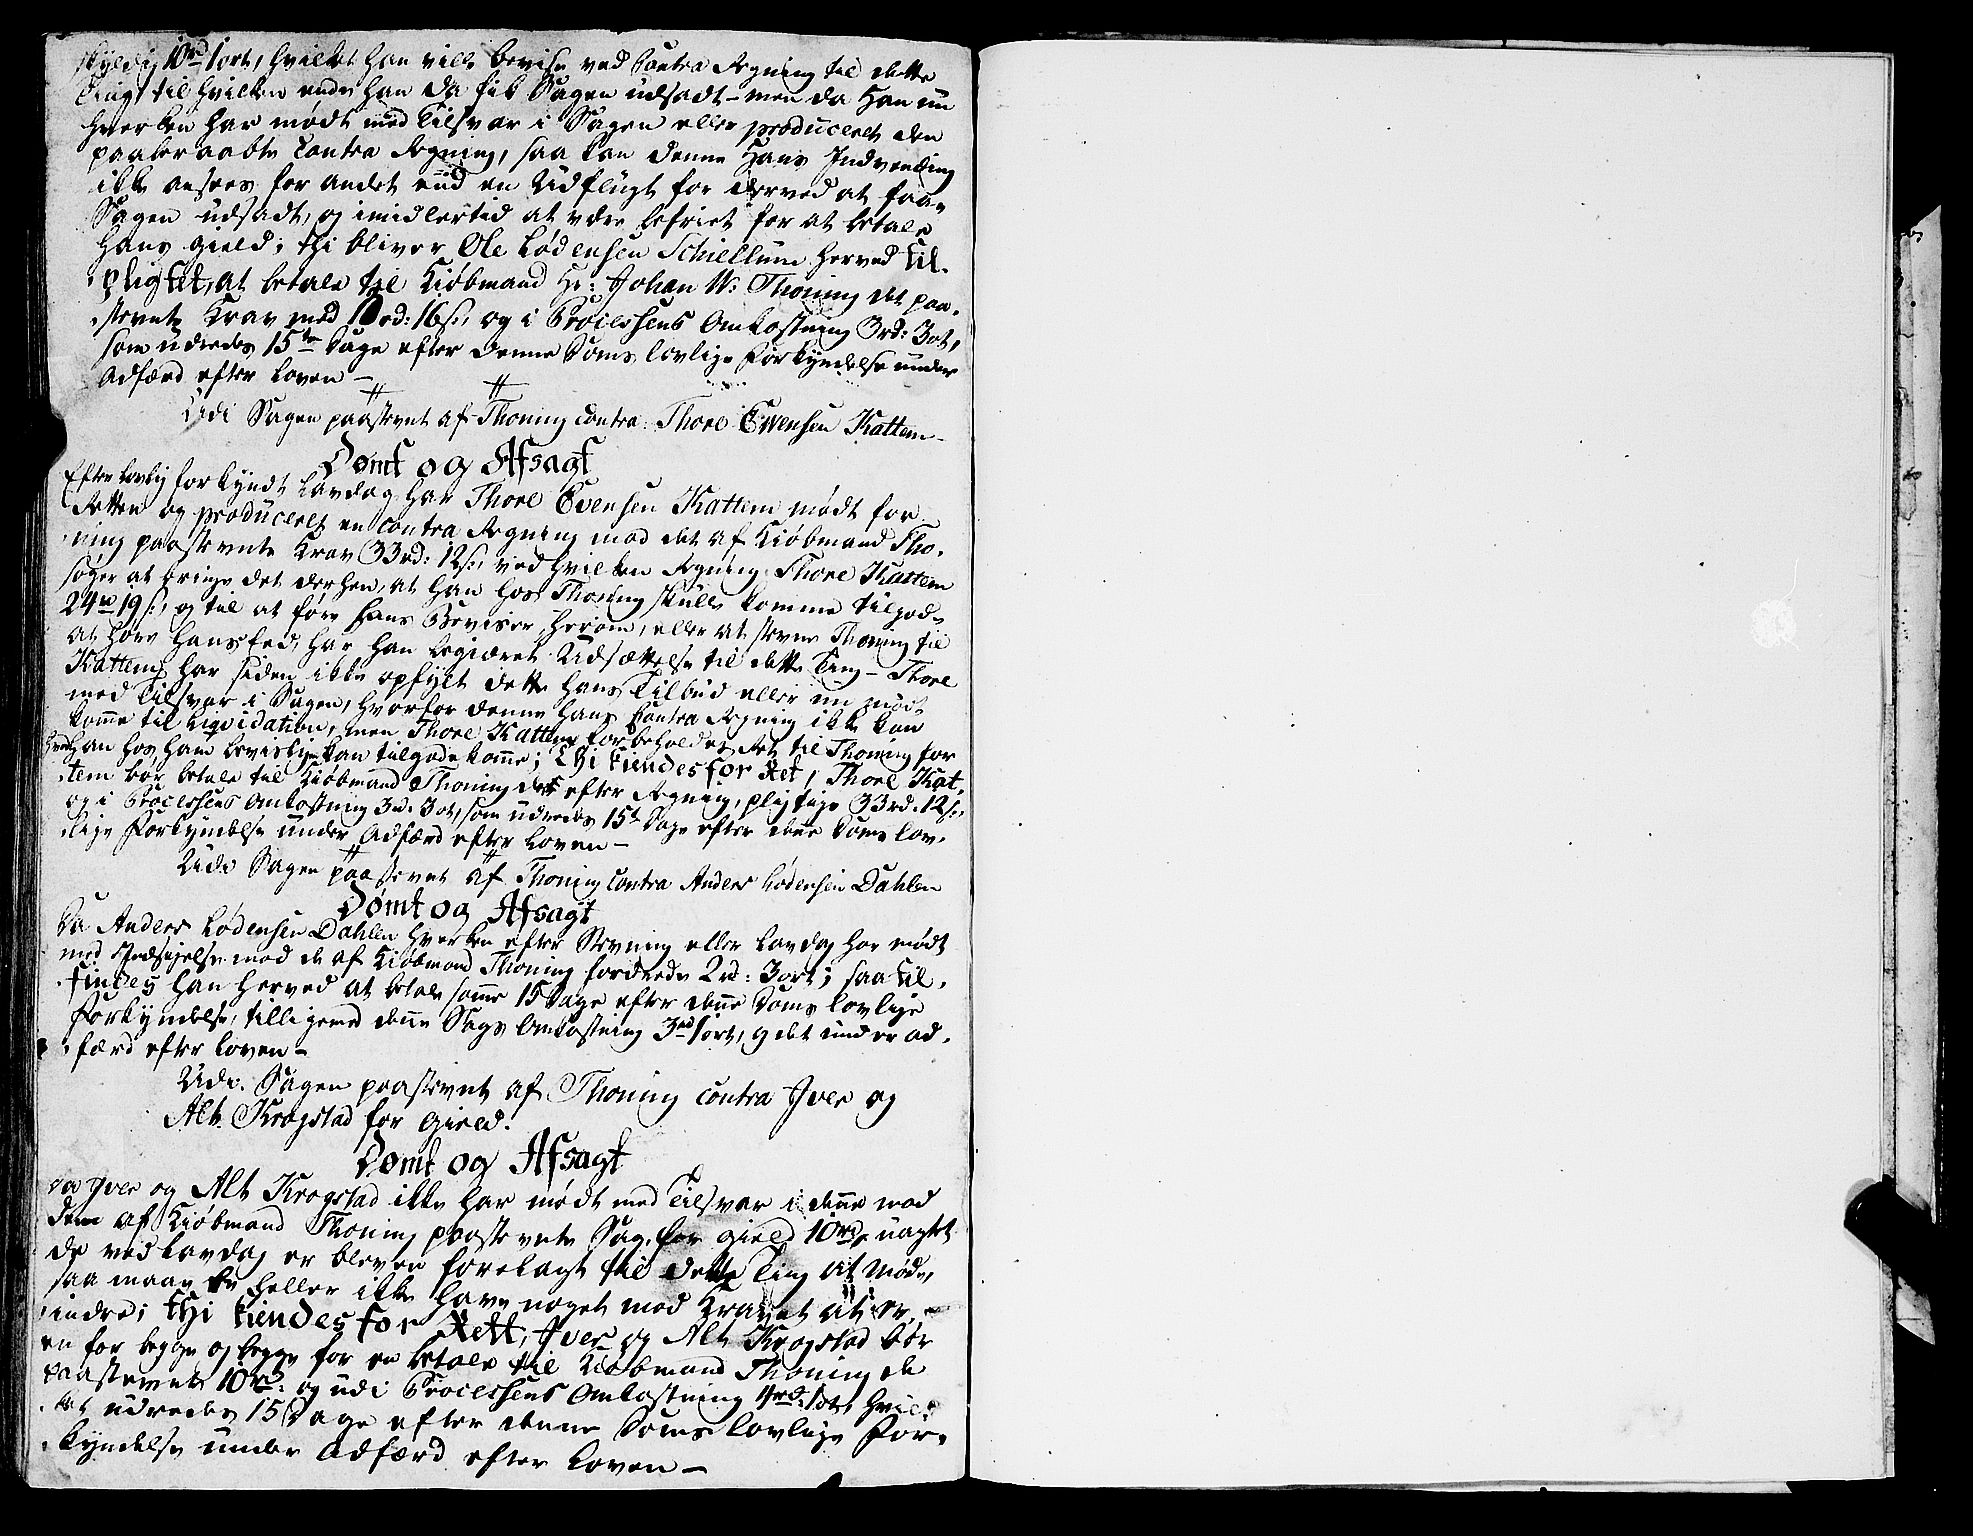 skyldig 10rd 1ort, hvilket han vilde bevise ved Contra Regning til dette
Ting, til hvilken ende han da fik Sagen udsadt – men da Han nu
hverken har mødt med Tilsvar i Sagen eller produceret den
paaberaabte Contra Regning, saa kan denne Hans Indvending
ikke ansees for andet end en Udflugt for derved at faae
Sagen udsadt, og imidlertid at være befriet for at betale
Hans Gield; thi bliver Ole Lødensen Schiellum herved til-
pligtet, at betale til Kiøbmand Hr: Johan W: Thoning det paa-
stevnte Krav med 10rd: 16s:, og i Processens Omkostning 3rd: 3ort,
som udredes 15ten Dage efter denne Doms lovlige Forkyndelse under
Adfærd efter Loven –
Udi Sagen paastevnt af Thoning contra Thore Evensen Kattem –
Dømt og Afsagt
Efter lovlig forkyndt Lavdag har Thore Evensen Kattem mødt for
Retten og produceret en contra Regning mod det af Kiøbmand Tho-
ning paastevnte Krav 33rd: 12s:, ved hvilken Regning Thore Kattem
søger at bringe det derhen, at han hos Thoning skulle komme tilgode
24rd 19s:, og til at føre hans Beviser herom, eller at stevne Thoning til
at høre hans Eed, har han begiæret Udsættelse til dette Ting – Thore
Kattem har siden ikke opfylt dette hans Tilbud eller nu mødt
med Tilsvar i Sagen, hvorfor denne hans Contra Regning ikke kan
komme til Liqvidation, men Thore Kattem forbeholdes Ret til Thoning for
hvad han hos ham beviislig kan tilgodekomme; Thi kiendes for Ret, Thore Kat-
tem bør betale til Kiøbmand Thoning det efter Regning pligtige 33rd. 12s:,
og i Processens Omkostning 3rd. 3ort, som udredes 15t Dage efter denne Doms lov-
lige Forkyndelse under Adfærd efter Loven –
Udi Sagen paastevnt af Thoning contra Anders Lødensen Dahlen
Dømt og Afsagt
Da Anders Lødensen Dahlen hverken efter Stevning eller Lavdag har mødt
med Indsigelse mod de af Kiøbmand Thoning fordrede 2rd: 3ort; saa til-
findes han herved at betale samme 15 Dage efter denne Doms lovlige
Forkyndelse, tilligemed denne Sags Omkostning 3rd 1ort, og det under ad-
færd efter Loven –
Udi Sagen paastevnt af Thoning contra Iver og
Alt Krogstad for Gield.
Dømt og Afsagt
Da Iver og Alt Krogstad ikke har mødt med Tilsvar i denne mod
dem af Kiøbmand Thoning paastevnte Sag, for Gield 10rd, uagtet
de ved Lavdag er bleven forelagt til dette Ting at møde,
saa maae de heller ikke have noget mod Kravet at er-
indre; thi kiendes for Rett, Iver og Alt Krogstad bør
en for begge og begge for en betale til Kiøbmand Thoning de
paastevnte 10rd: og udi Processens Omkostning 4rd: 1ort, hvil-
ket udredes 15 Dage efter denne Doms lovlige For-
kyndelse under Adfærd efter Loven –